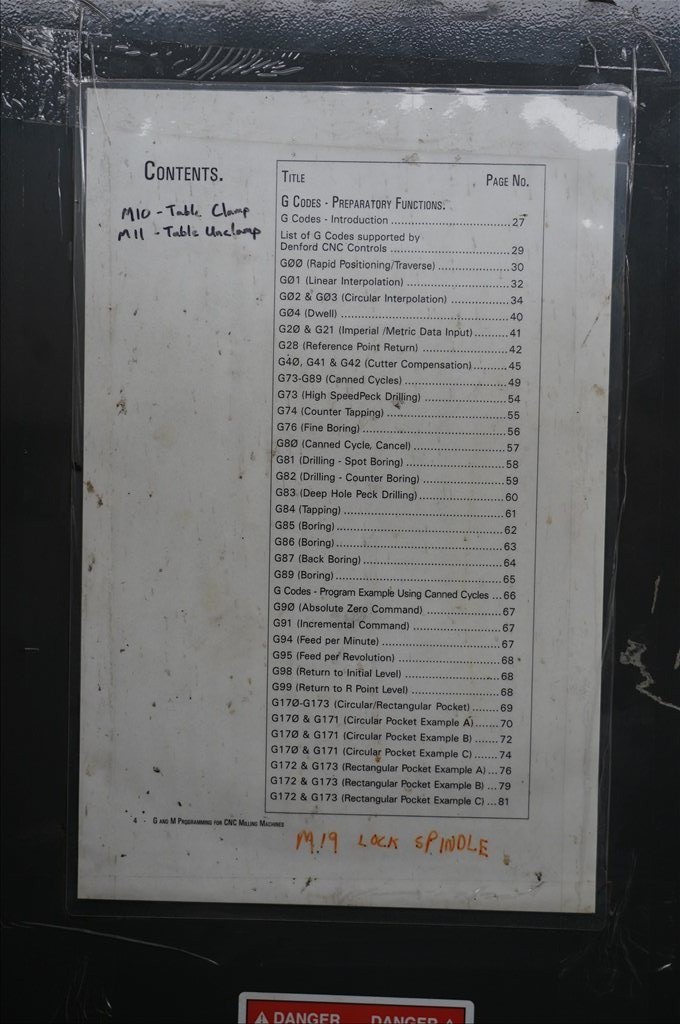 CONTENTS.
M10 - Table Clamp
M11 - Table Unclamp
TITLE PAGE NO.
G CODES - PREPARATORY FUNCTIONS.
G Codes - Introduction ........................................27
List of G Codes supported by
Denford CNC Controls .........................................29
GØØ (Rapid Positioning/Traverse) ........................30
GØ1 (Linear Interpolation) ..................................32
GØ2 & GØ3 (Circular Interpolation) .....................34
GØ4 (Dwell) ......................................................40
G2Ø & G21 (Imperial /Metric Data Input).........41
G28 (Reference Point Return) ............................42
G4Ø, G41 & G42 (Cutter Compensation)..........45
G73-G89 (Canned Cycles) .................................49
G73 (High SpeedPeck Drilling) ..........................54
G74 (Counter Tapping) ......................................55
G76 (Fine Boring) ..............................................56
G8Ø (Canned Cycle, Cancel) ..............................57
G81 (Drilling - Spot Boring) ...............................58
G82 (Drilling - Counter Boring) ..........................59
G83 (Deep Hole Peck Drilling)...........................60
G84 (Tapping) ...................................................61
G85 (Boring) .....................................................62
G86 (Boring) .....................................................63
G87 (Back Boring) .............................................64
G89 (Boring) .....................................................65
G Codes - Program Example Using Canned Cycles ...66
G9Ø (Absolute Zero Command) ........................67
G91 (Incremental Command) ............................67
G94 (Feed per Minute) .......................................67
G95 (Feed per Revolution) .................................68
G98 (Return to Initial Level) ...............................68
G99 (Return to R Point Level) ............................68
G17Ø-G173 (Circular/Rectangular Pocket) ........69
G17Ø & G171 (Circular Pocket Example A).......70
G17Ø & G171 (Circular Pocket Example B) .......72
G17Ø & G171 (Circular Pocket Example C) .......74
G172 & G173 (Rectangular Pocket Example A) ...76
G172 & G173 (Rectangular Pocket Example B) ...79
G172 & G173 (Rectangular Pocket Example C) ...81
4 - G AND M PROGRAMMING FOR CNC MILLING MACHINES
M19 LOCK SPINDLE
DANGER DANGER